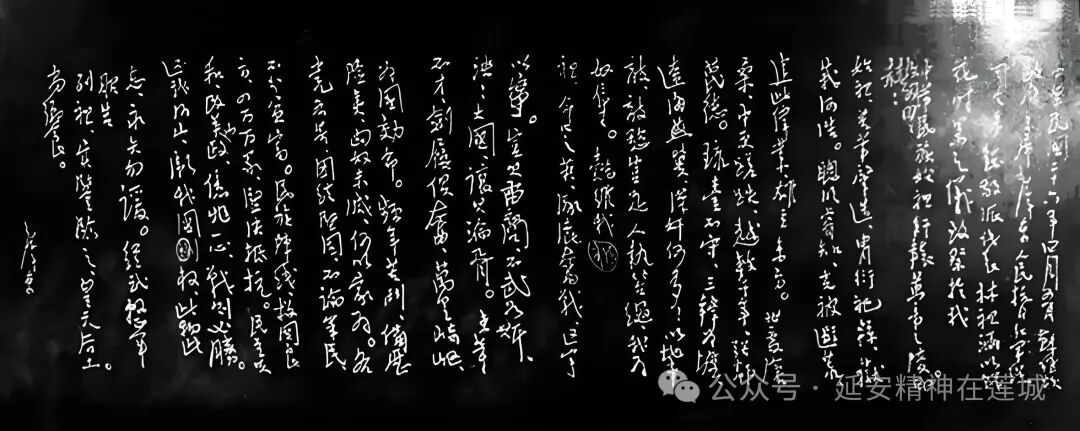 维中华民国二十六年四月五日，苏维埃
政府主席毛泽东、人民抗日红军总
司令朱德敬派代表林祖涵，以鲜
花时果之仪致祭于我
中华民族始祖轩辕黄帝之陵。
而致词曰：
赫赫始祖，吾华肇造，胄衍祀绵，岳
峨河浩。聪明睿知，光被遐荒，
建此伟业，雄立东方。世变沧
桑，中更蹉跌，越数千年，强邻
蔑德。琉台不守，三韩为墟，
辽海燕冀，汉奸何多！以地事
敌，敌欲岂足，人执笞绳，我为
奴辱。懿维我祖，
命世之英，涿鹿奋战，区宇
以宁。岂其苗裔，不武如斯，
泱泱大国，让其沦胥。东等
不才，剑屦俱奋，万里崎岖，
为国效命。频年苦斗，备历
险夷，匈奴未灭，何以家为。各
党各界，团结坚固，不论军民，
不分贫富。民族阵线，救国良
方，四万万众，坚决抵抗。民主共
和，改革内政，亿兆一心，战则必胜。
还我河山，卫我国权，此物此
志，永矢勿谖。经武整军，
昭告
列祖，实鉴临之，皇天后土。
尚飨。
毛泽东
公众号·延安精神在莲城